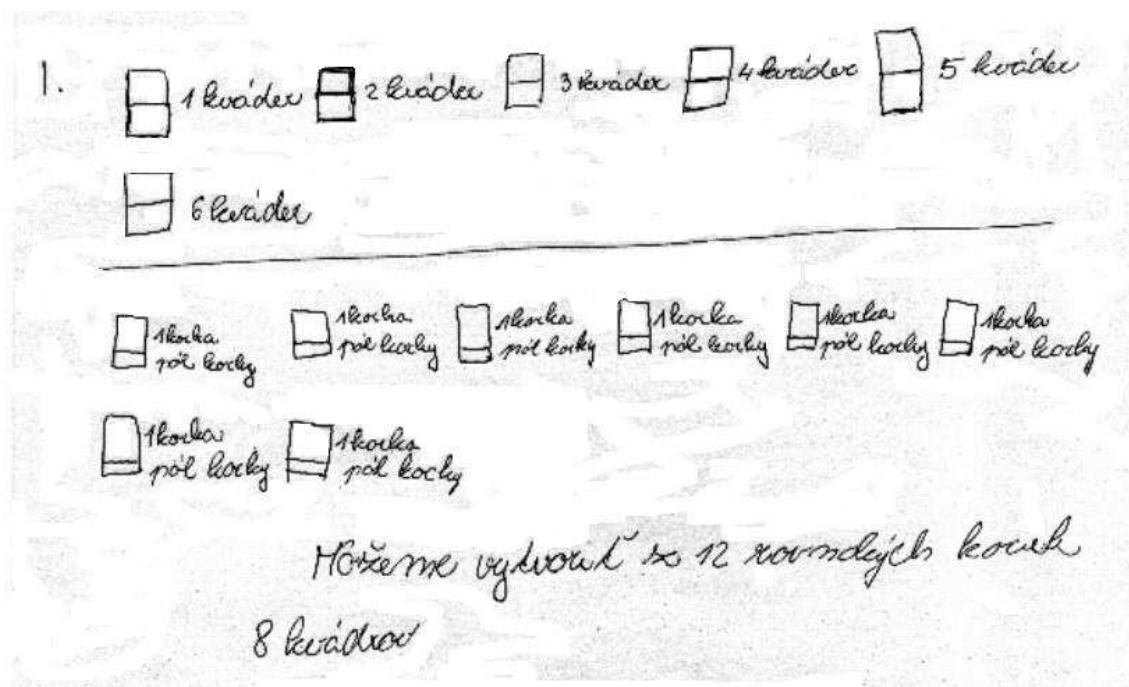 1. 1 kváder 2 kváder 3 kváder 4 kváder 5 kváder
6 kváder
1 kocka 1 kocka 1 kocka 1 kocka 1 kocka 1 kocka
pól kocky pól kocky pól kocky pól kocky pól kocky pól kocky
1 kocka 1 kocka
pól kocky pól kocky
Môžeme vytvoriť z 12 rovnakých kociek
8 kvádrov